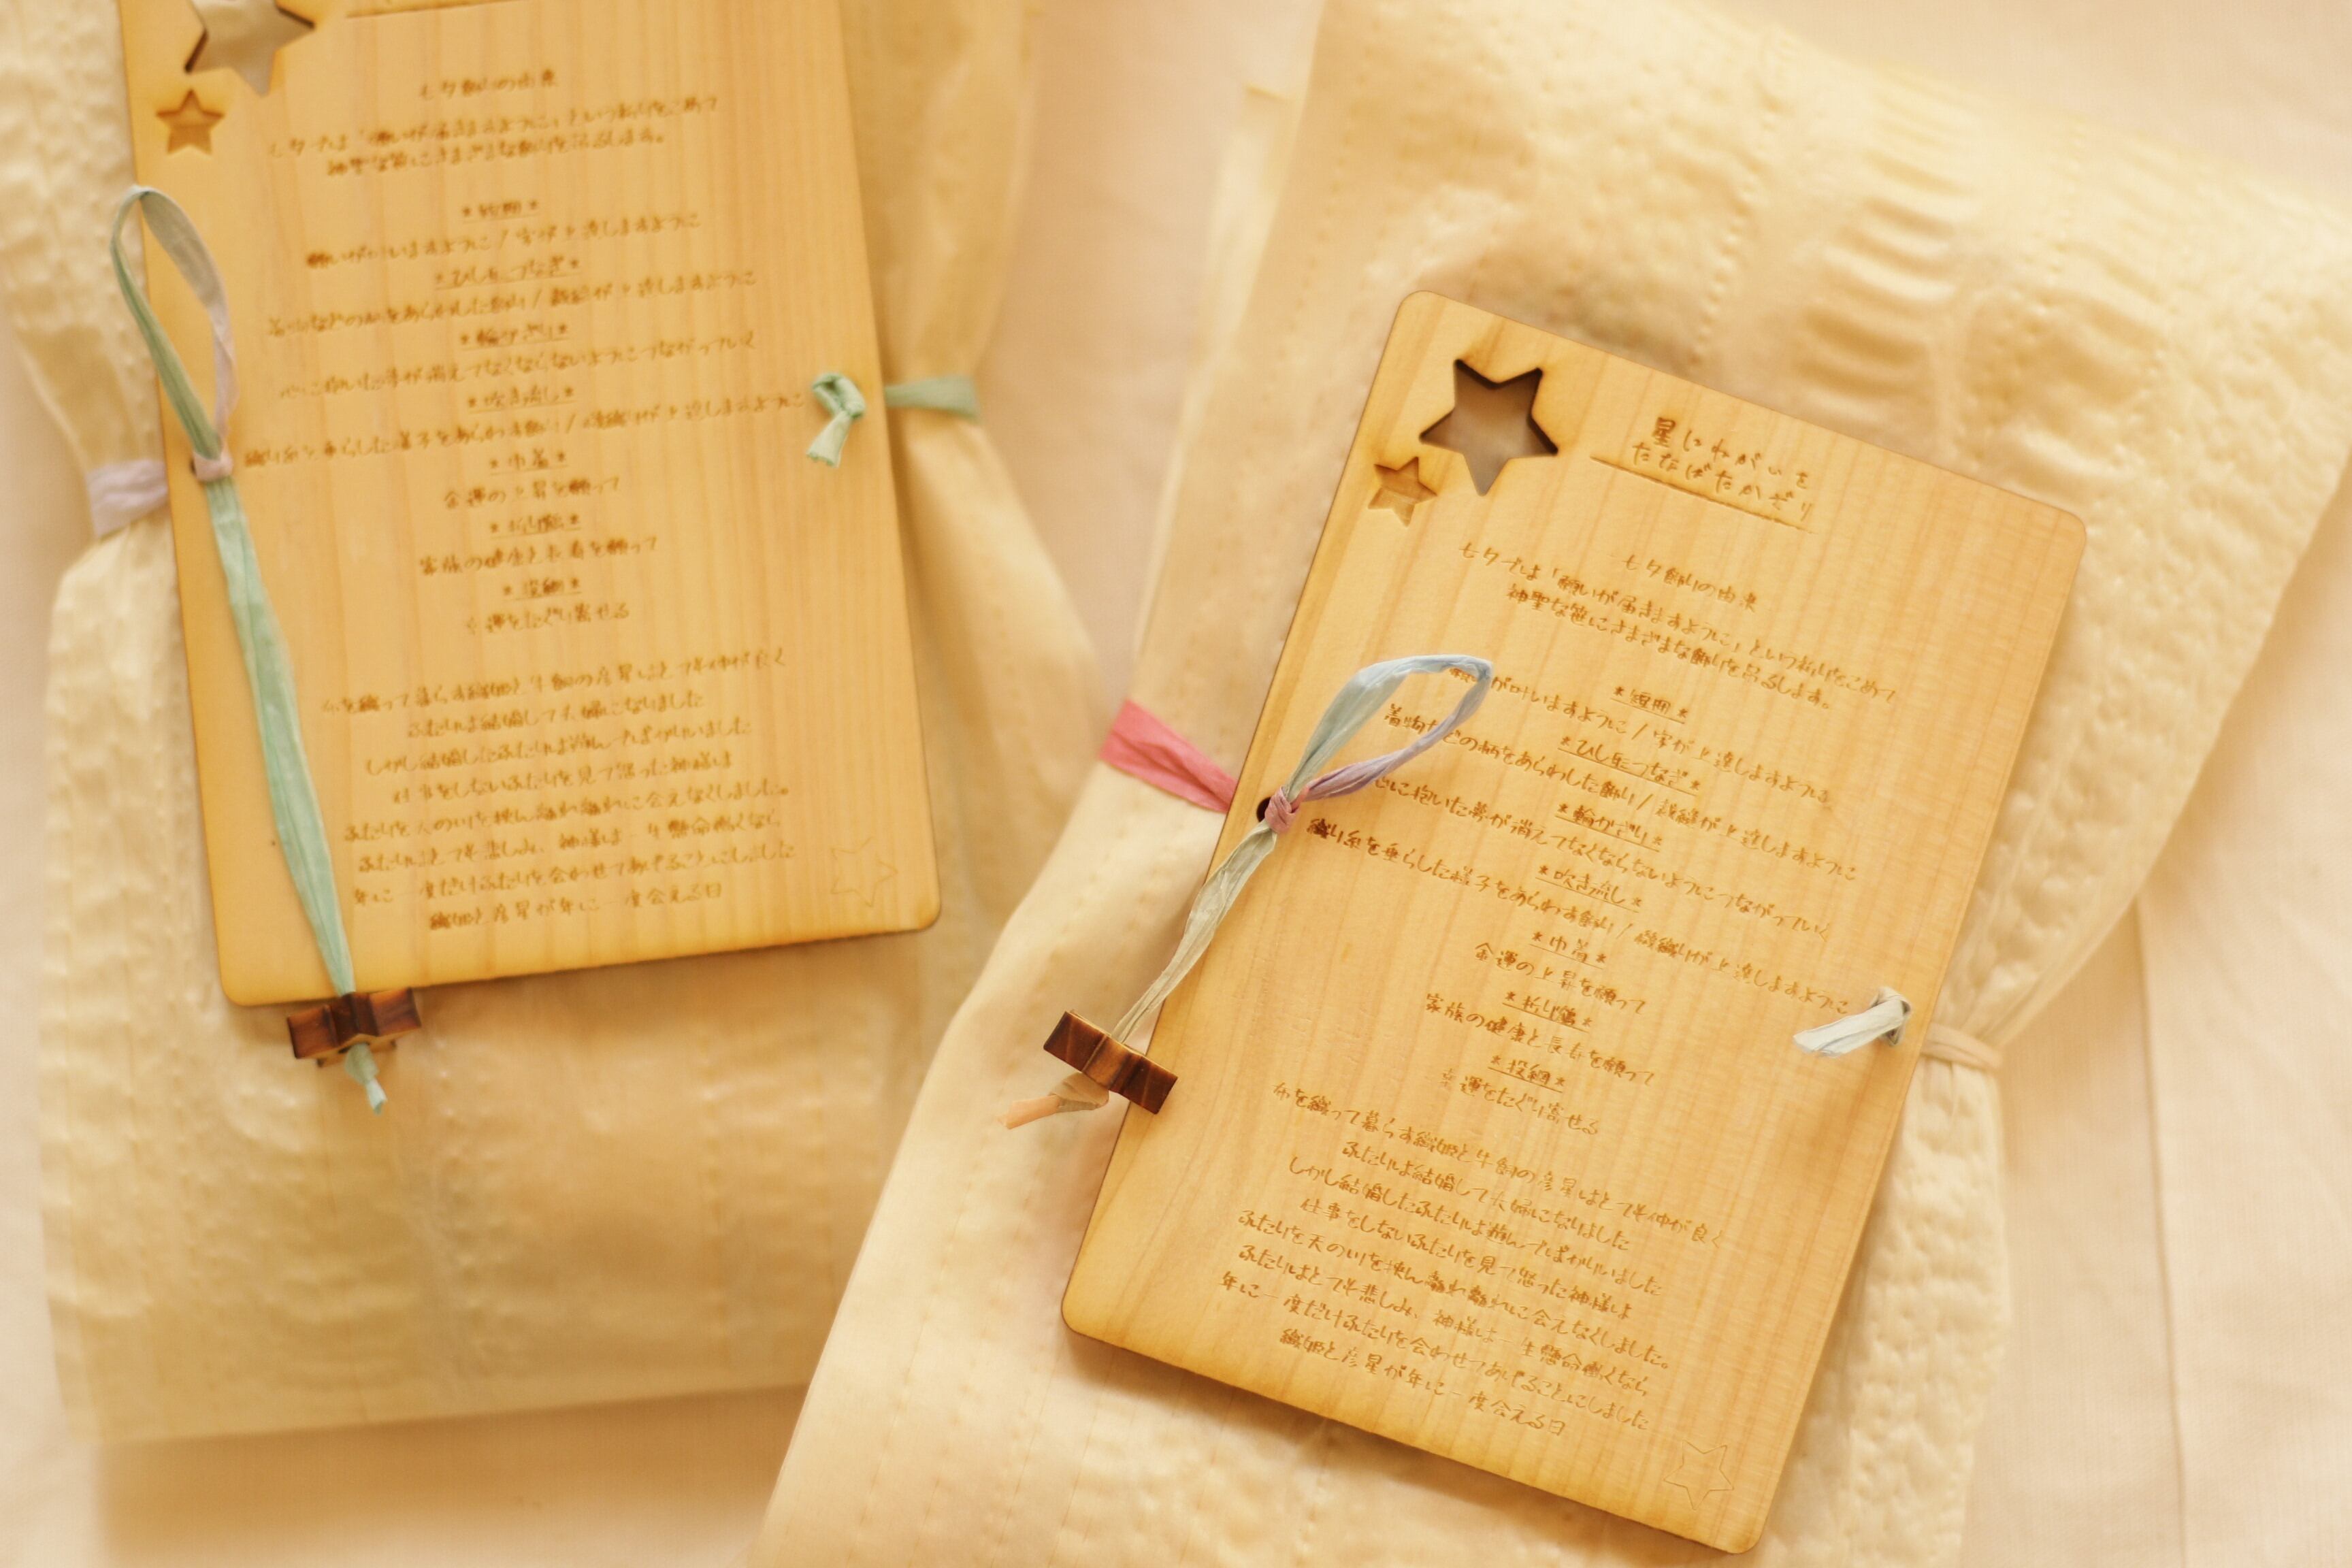 七夕飾りの由来
七夕では「願いが届きますように」という祈りをこめて
神聖な笹にさまざまな飾りを吊るします。
*短冊*
願いが叶いますように / 字が上達しますように
*ひし形つなぎ*
着物などの柄をあらわした飾り / 裁縫が上達しますように
*輪かざり*
心に抱いた夢が消えてなくならないようにつながっていく
*吹き流し*
織り糸を垂らした様子をあらわす飾り / 機織りが上達しますように
*巾着*
金運の上昇を願って
*折り鶴*
家族の健康と長寿を願って
*投網*
幸運をたぐり寄せる
布を織って暮らす織姫と牛飼の彦星はとても仲が良く
ふたりは結婚して夫婦になりました
しかし結婚したふたりは遊んでばかりいました
仕事をしないふたりを見て怒った神様は
ふたりを天の川を挟ん離れ離れに会えなくしました。
ふたりはとても悲しみ、神様は一生懸命働くなら
年に一度だけふたりを会わせてあげることにしました
織姫と彦星が年に一度会える日
星にねがいを
たなばたかざり
七夕飾りの由来
七夕では「願いが届きますように」という祈りをこめて
神聖な笹にさまざまな飾りを吊るします。
*短冊*
が叶いますように / 字が上達しますように
*ひし形つなぎ*
着物などの柄をあらわした飾り / 裁縫が上達しますように
*輪かざり*
心に抱いた夢が消えてなくならないようにつながっていく
*吹き流し*
織り糸を垂らした様子をあらわす飾り / 機織りが上達しますように
*巾着*
金運の上昇を願って
*折り鶴*
家族の健康と長寿を願って
*投網*
幸運をたぐり寄せる
布を織って暮らす織姫と牛飼の彦星はとても仲が良く
ふたりは結婚して夫婦になりました
しかし結婚したふたりは遊んでばかりいました
仕事をしないふたりを見て怒った神様は
ふたりを天の川を挟ん離れ離れに会えなくしました。
ふたりはとても悲しみ、神様は一生懸命働くなら
年に一度だけふたりを会わせてあげることにしました
織姫と彦星が年に一度会える日